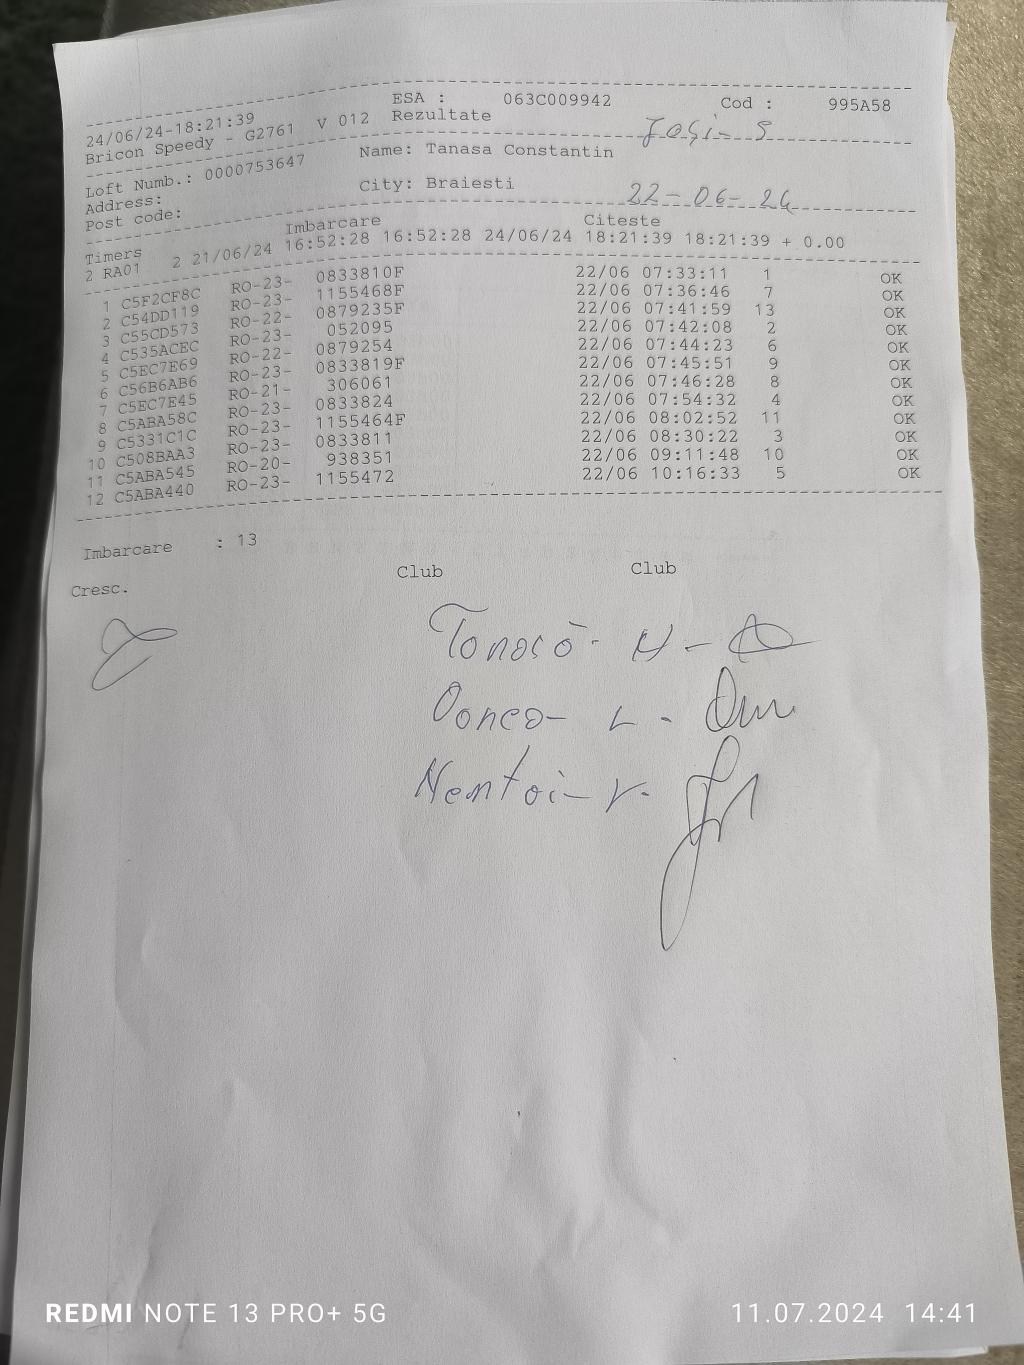 ESA : 063C009942 Cod : 995A58
24/06/24-18:21:39
Bricon Speedy - G2761 V 012 Rezultate
Iași - 5
Loft Numb.: 0000753647 Name: Tanasa Constantin
Address:
Post code: City: Braiesti
22-06-24
Imbarcare Citeste
Timers
2 RA01 2 21/06/24 16:52:28 16:52:28 24/06/24 18:21:39 18:21:39 + 0.00
1 C5F2CF8C RO-23- 0833810F 22/06 07:33:11 1 OK
2 C54DD119 RO-23- 1155468F 22/06 07:36:46 7 OK
3 C55CD573 RO-22- 0879235F 22/06 07:41:59 13 OK
4 C535ACEC RO-23- 052095 22/06 07:42:08 2 OK
5 C5EC7E69 RO-22- 0879254 22/06 07:44:23 6 OK
6 C56B6AB6 RO-23- 0833819F 22/06 07:45:51 9 OK
7 C5EC7E45 RO-21- 306061 22/06 07:46:28 8 OK
8 C5ABA58C RO-23- 0833824 22/06 07:54:32 4 OK
9 C5331C1C RO-23- 1155464F 22/06 08:02:52 11 OK
10 C508BAA3 RO-23- 0833811 22/06 08:30:22 3 OK
11 C5ABA545 RO-20- 938351 22/06 09:11:48 10 OK
12 C5ABA440 RO-23- 1155472 22/06 10:16:33 5 OK
Imbarcare : 13
Cresc. Club Club
REDMI NOTE 13 PRO+ 5G 11.07.2024 14:41